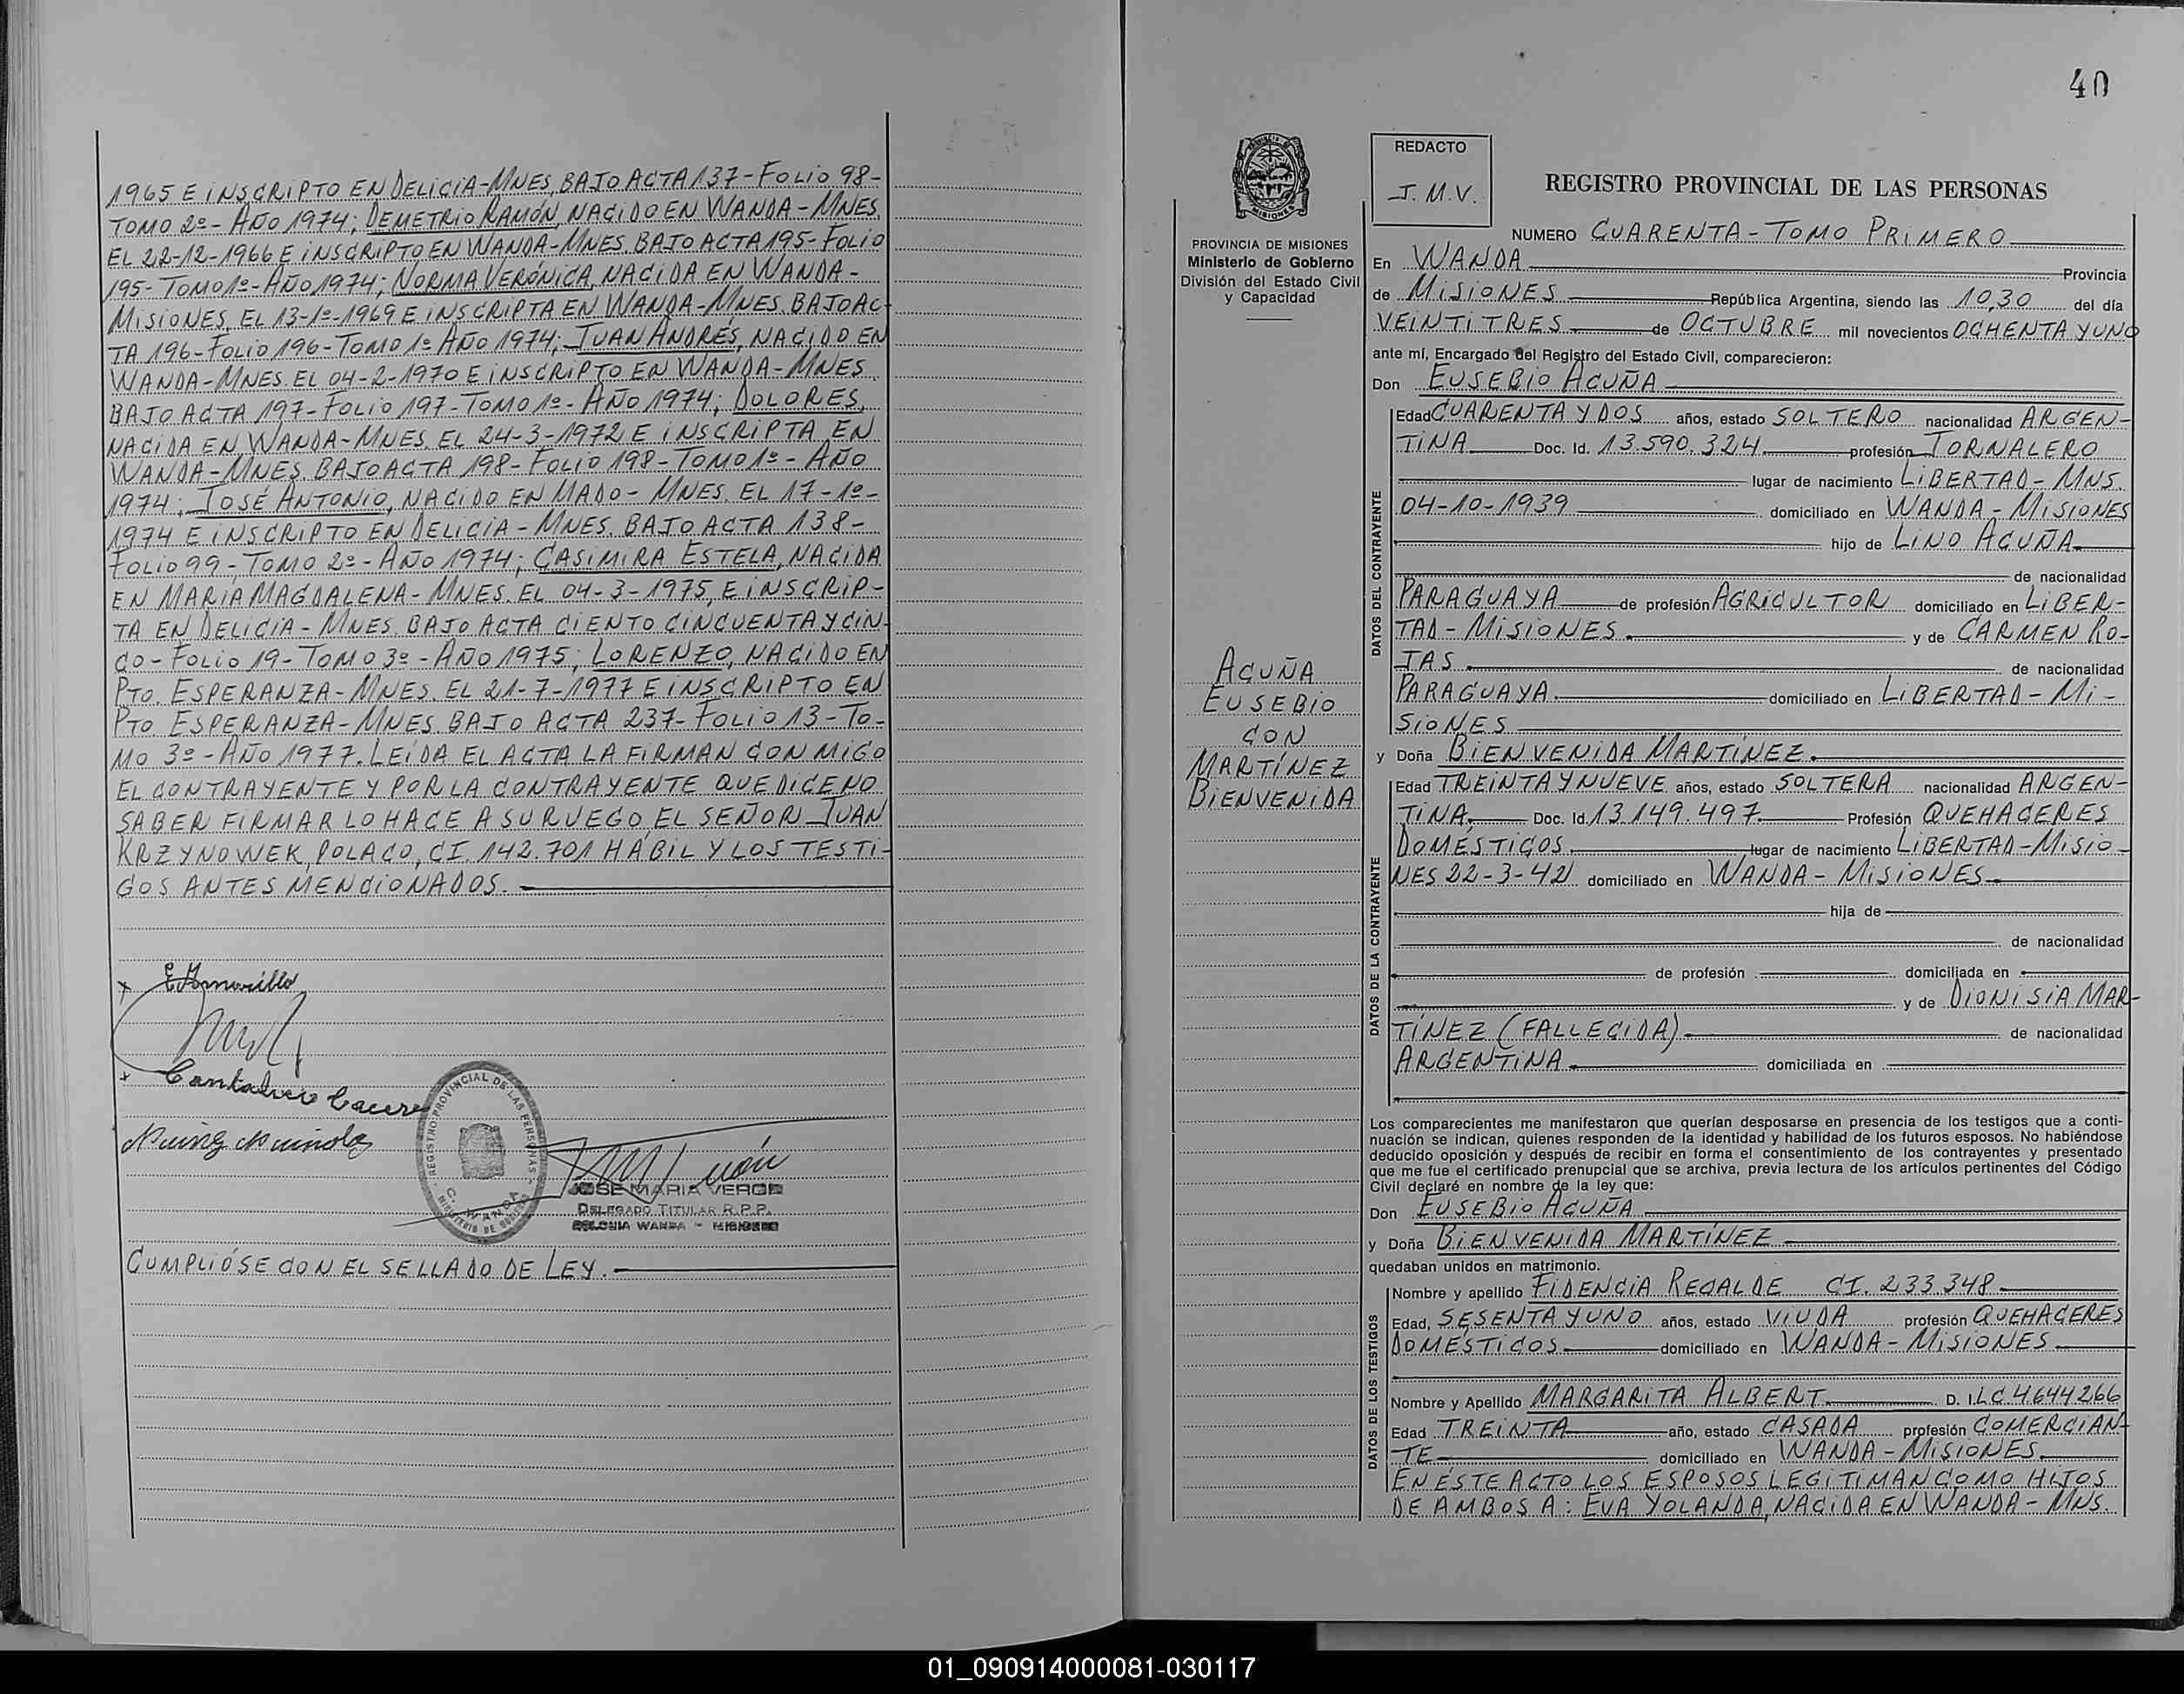 1965 E INSCRIPTO EN DELICIA-MNES. BAJO ACTA 137-FOLIO 98-
TOMO 2º- AÑO 1974; DEMETRIO RAMÓN, NACIDO EN WANDA-MNES.
EL 22-12-1966 E INSCRIPTO EN WANDA-MNES. BAJO ACTA 195-FOLIO
195-TOMO 1º-AÑO 1974; NORMA VERÓNICA, NACIDA EN WANDA-
MISIONES, EL 13-1º-1969 E INSCRIPTA EN WANDA-MNES. BAJO AC-
TA 196-FOLIO 196-TOMO 1º AÑO 1974; JUAN ANDRÉS, NACIDO EN
WANDA-MNES. EL 04-2-1970 E INSCRIPTO EN WANDA-MNES.
BAJO ACTA 197-FOLIO 197-TOMO 1º-AÑO 1974; DOLORES,
NACIDA EN WANDA-MNES. EL 24-3-1972 E INSCRIPTA EN
WANDA-MNES. BAJO ACTA 198-FOLIO 198-TOMO 1º-AÑO
1974; JOSÉ ANTONIO, NACIDO EN MADO-MNES. EL 17-1º-
1974 E INSCRIPTO EN DELICIA-MNES. BAJO ACTA 138-
FOLIO 99-TOMO 2º-AÑO 1974; CASIMIRA ESTELA, NACIDA
EN MARÍA MAGDALENA-MNES. EL 04-3-1975, E INSCRIP-
TA EN DELICIA-MNES. BAJO ACTA CIENTO CINCUENTA Y CIN-
CO-FOLIO 19-TOMO 3º-AÑO 1975; LORENZO, NACIDO EN
PTO. ESPERANZA-MNES. EL 21-7-1977 E INSCRIPTO EN
PTO. ESPERANZA-MNES. BAJO ACTA 237-FOLIO 13-TO-
MO 3º-AÑO 1977. LEÍDA EL ACTA LA FIRMAN CONMIGO
EL CONTRAYENTE Y POR LA CONTRAYENTE QUE DICE NO
SABER FIRMAR LO HACE A SU RUEGO, EL SEÑOR JUAN
KRZYNOWEK, POLACO, CI. 142.701 HÁBIL Y LOS TESTI-
GOS ANTES MENCIONADOS.
REGISTRO PROVINCIAL DE LAS PERSONAS
WANDA
JOSE MARIA VERON
DELEGADO TITULAR R.P.P.
COLONIA WANDA - MISIONES
CUMPLIÓSE CON EL SELLADO DE LEY.
40
MISIONES
PROVINCIA DE MISIONES
Ministerio de Gobierno
División del Estado Civil
y Capacidad
ACUÑA
EUSEBIO
CON
MARTÍNEZ
BIENVENIDA
REDACTO
J.M.V.
REGISTRO PROVINCIAL DE LAS PERSONAS
NUMERO CUARENTA-TOMO PRIMERO
En WANDA Provincia
de MISIONES República Argentina, siendo las 10,30 del día
VEINTITRES de OCTUBRE mil novecientos OCHENTA Y UNO
ante mí, Encargado del Registro del Estado Civil, comparecieron:
Don EUSEBIO ACUÑA
DATOS DEL CONTRAYENTE
Edad CUARENTA Y DOS años, estado SOLTERO nacionalidad ARGEN-
TINA Doc. Id. 13.590.324. profesión JORNALERO
lugar de nacimiento LIBERTAD-MNS.
04-10-1939 domiciliado en WANDA-MISIONES
hijo de LINO ACUÑA
de nacionalidad
PARAGUAYA de profesión AGRICULTOR domiciliado en LIBER-
TAD-MISIONES. y de CARMEN RO-
JAS. de nacionalidad
PARAGUAYA. domiciliado en LIBERTAD-MI-
SIONES
y Doña BIENVENIDA MARTÍNEZ.
DATOS DE LA CONTRAYENTE
Edad TREINTA Y NUEVE años, estado SOLTERA nacionalidad ARGEN-
TINA. Doc. Id. 13.149.497. Profesión QUEHACERES
DOMÉSTICOS. lugar de nacimiento LIBERTAD-MISIO-
NES 22-3-42 domiciliado en WANDA-MISIONES.
hija de
de nacionalidad
de profesión domiciliada en
y de DIONISIA MAR-
TÍNEZ (FALLECIDA) de nacionalidad
ARGENTINA. domiciliada en
Los comparecientes me manifestaron que querían desposarse en presencia de los testigos que a conti-
nuación se indican, quienes responden de la identidad y habilidad de los futuros esposos. No habiéndose
deducido oposición y después de recibir en forma el consentimiento de los contrayentes y presentado
que me fue el certificado prenupcial que se archiva, previa lectura de los artículos pertinentes del Código
Civil declaré en nombre de la ley que:
Don EUSEBIO ACUÑA
y Doña BIENVENIDA MARTÍNEZ
quedaban unidos en matrimonio.
DATOS DE LOS TESTIGOS
Nombre y apellido FIDENCIA RECALDE CI. 233.348
Edad, SESENTA Y UNO años, estado VIUDA profesión QUEHACERES
DOMÉSTICOS domiciliado en WANDA-MISIONES.
Nombre y Apellido MARGARITA ALBERT. D. I. LC 4644266
Edad TREINTA año, estado CASADA profesión COMERCIAN-
TE domiciliado en WANDA-MISIONES.
EN ÉSTE ACTO LOS ESPOSOS LEGITIMAN COMO HIJOS
DE AMBOS A: EVA YOLANDA, NACIDA EN WANDA-MNS.
01_090914000081-030117